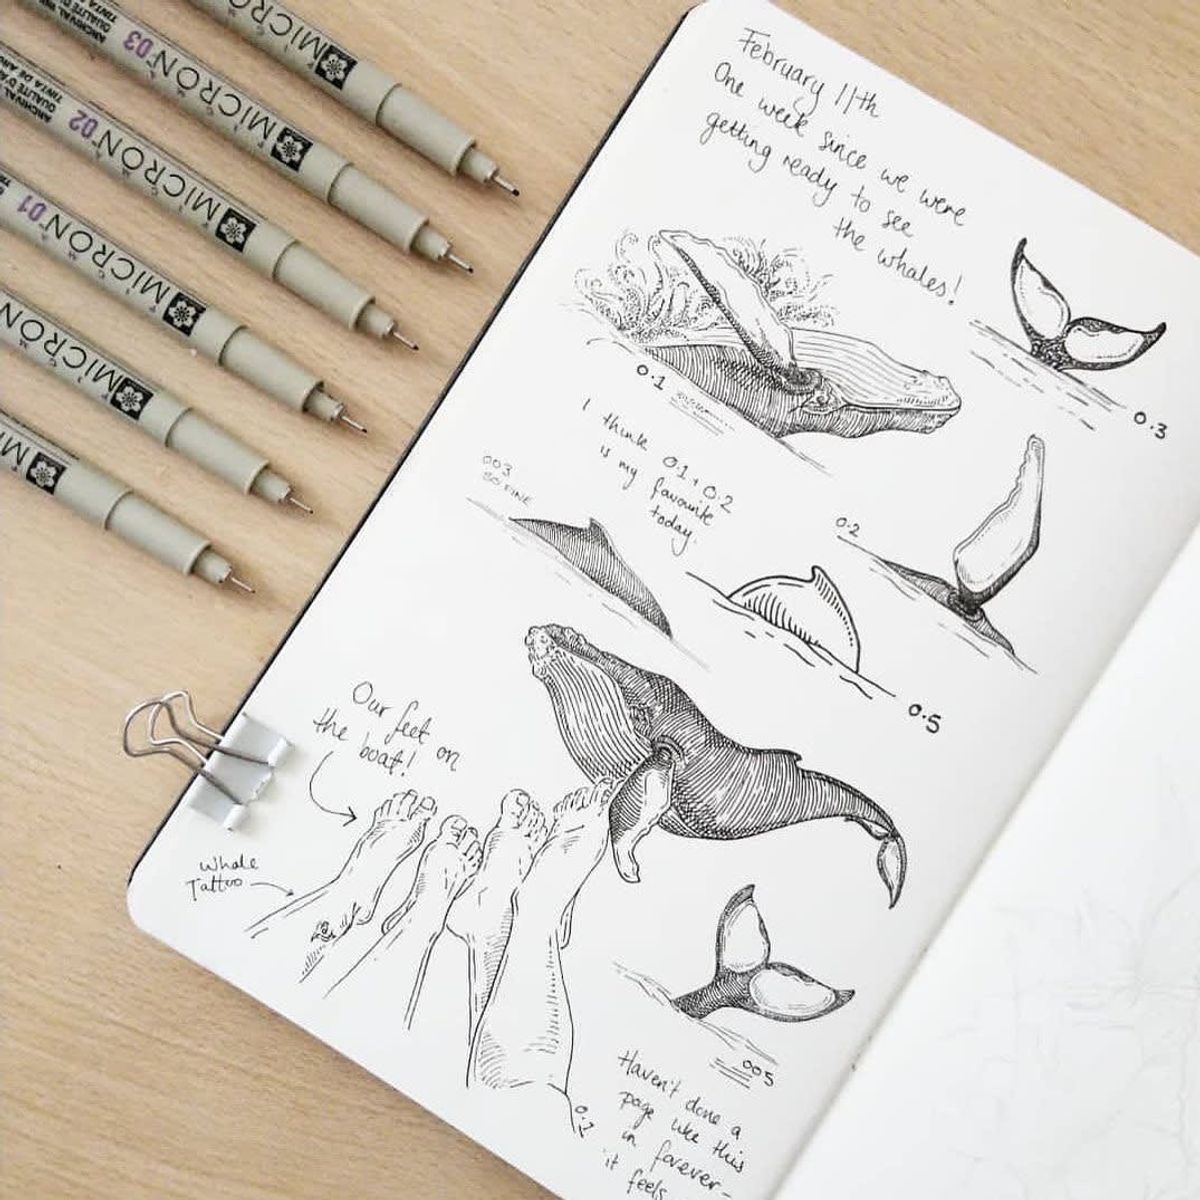 February 11th
One week since we were
getting ready to see
the whales!
0.3
0.1
I think 0.1 + 0.2
is my favourite
today.
003
SO FINE
0.2
0.5
Our feet on
the boat!
Whale
Tattoo
005
0.2
Haven't done a
page like this
in forever-
it feels
MICRON
MICRON 03
ARCHIVAL INK
QUALITÉ D'ARCHIVES
MICRON 02
ARCHIVAL
QUALITÉ D'A
TINTA DE AR
MICRON 01
MICRON
MI